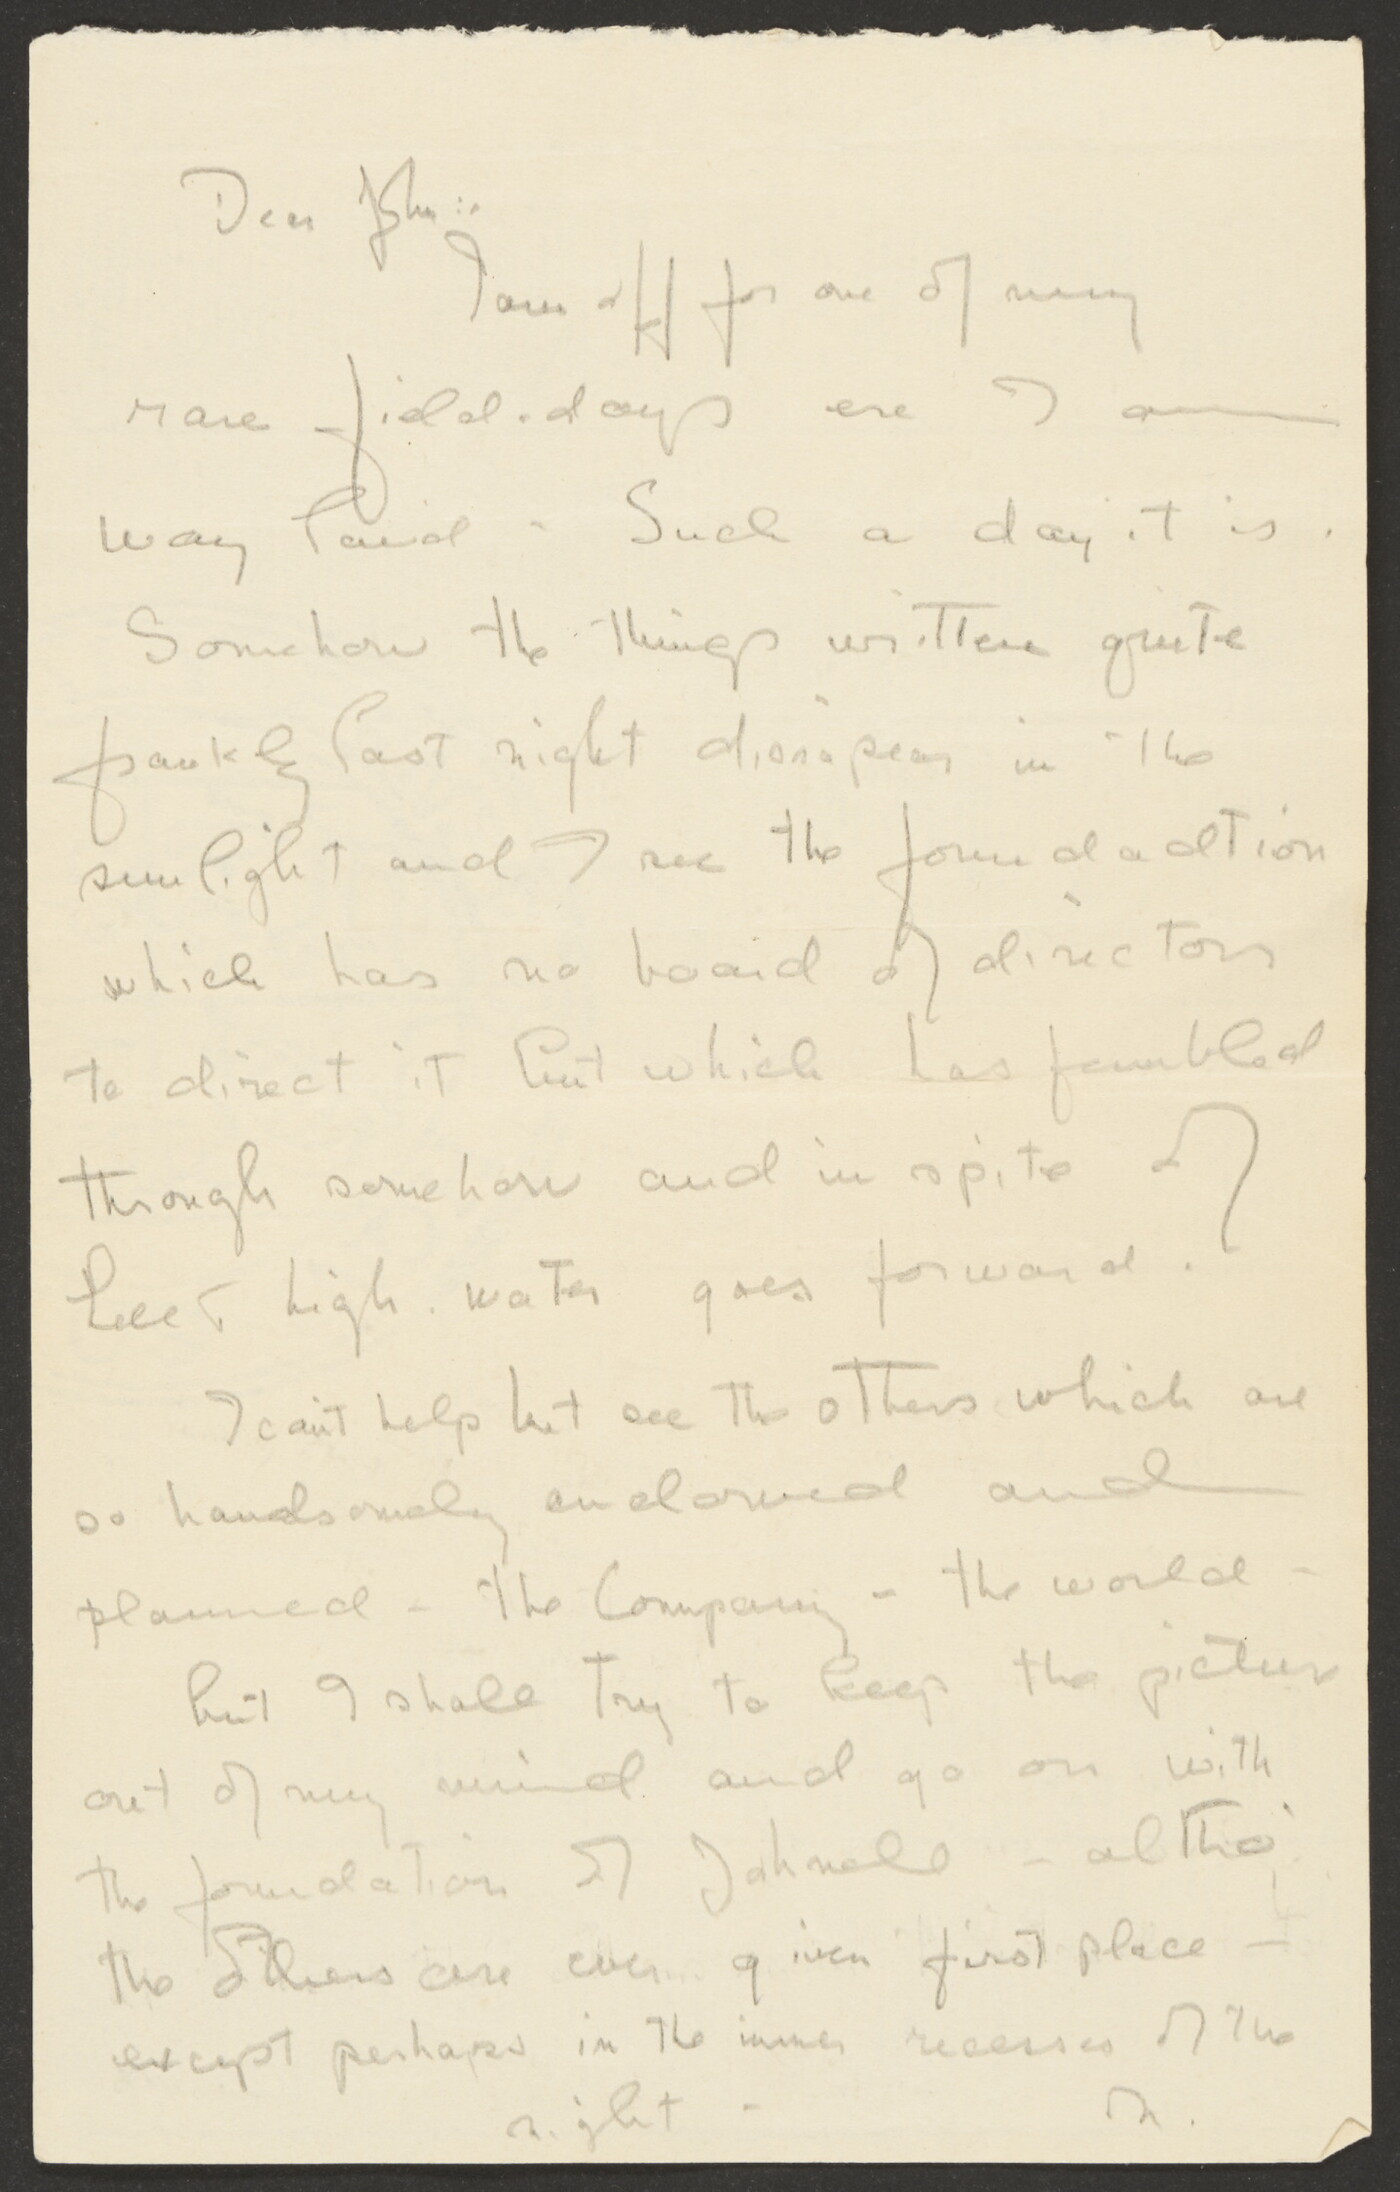 Dear John:
I am off for one of my
rare field.days ere I am
way laid - Such a day it is.
Somehow the things written quite
frankly last night dissapear in the
sunlight and I see the foundadtion
which has no board of directors
to direct it but which has fumbled
through somehow and in spite of
hell & high.water goes forward.
I can't help but see the others which are
so handsomely endowed and
planned - the Company - the world -
but I shall try to keep the picture
out of my mind and go on with
the foundation of Johnell - altho'
the others are ever given first place -
except perhaps in the inner recesses of the
night - M.